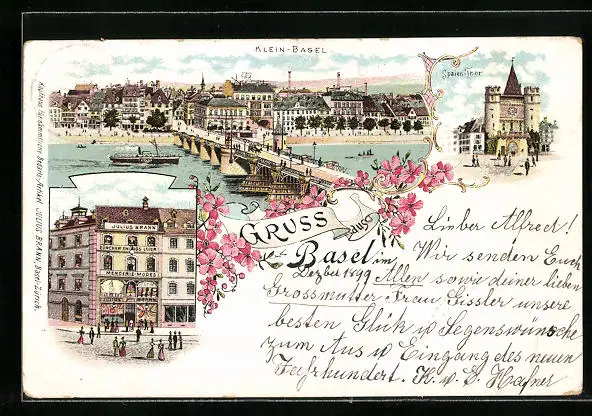 KLEIN-BASEL
Spalen-Thor
Kaufhaus für sämmtliche Bedarfs-Artikel JULIUS BRANN, Basel-Zürich.
JULIUS BRANN
ZÜRCHER ENGROS-LAGER
MERCERIE MODES
GRUSS
aus
Basel im
Dezbr 1899
Lieber Alfred!
Wir senden Euch
Allen sowie deiner lieben
Grossmutter Frau Gissler unsere
besten Glück u Segenswünsche
zum Aus u Eingang des neuen
Jahrhundert. K. u. L. Hafner